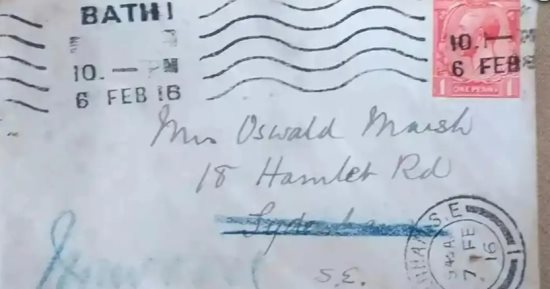 BATH 1
10. — PM
6 FEB 16
10. 1—
6 FEB
ONE PENNY
1 1
Mrs Oswald Marsh
18 Hamlet Rd
S.E.
NHAM. S.E
7 FE
16